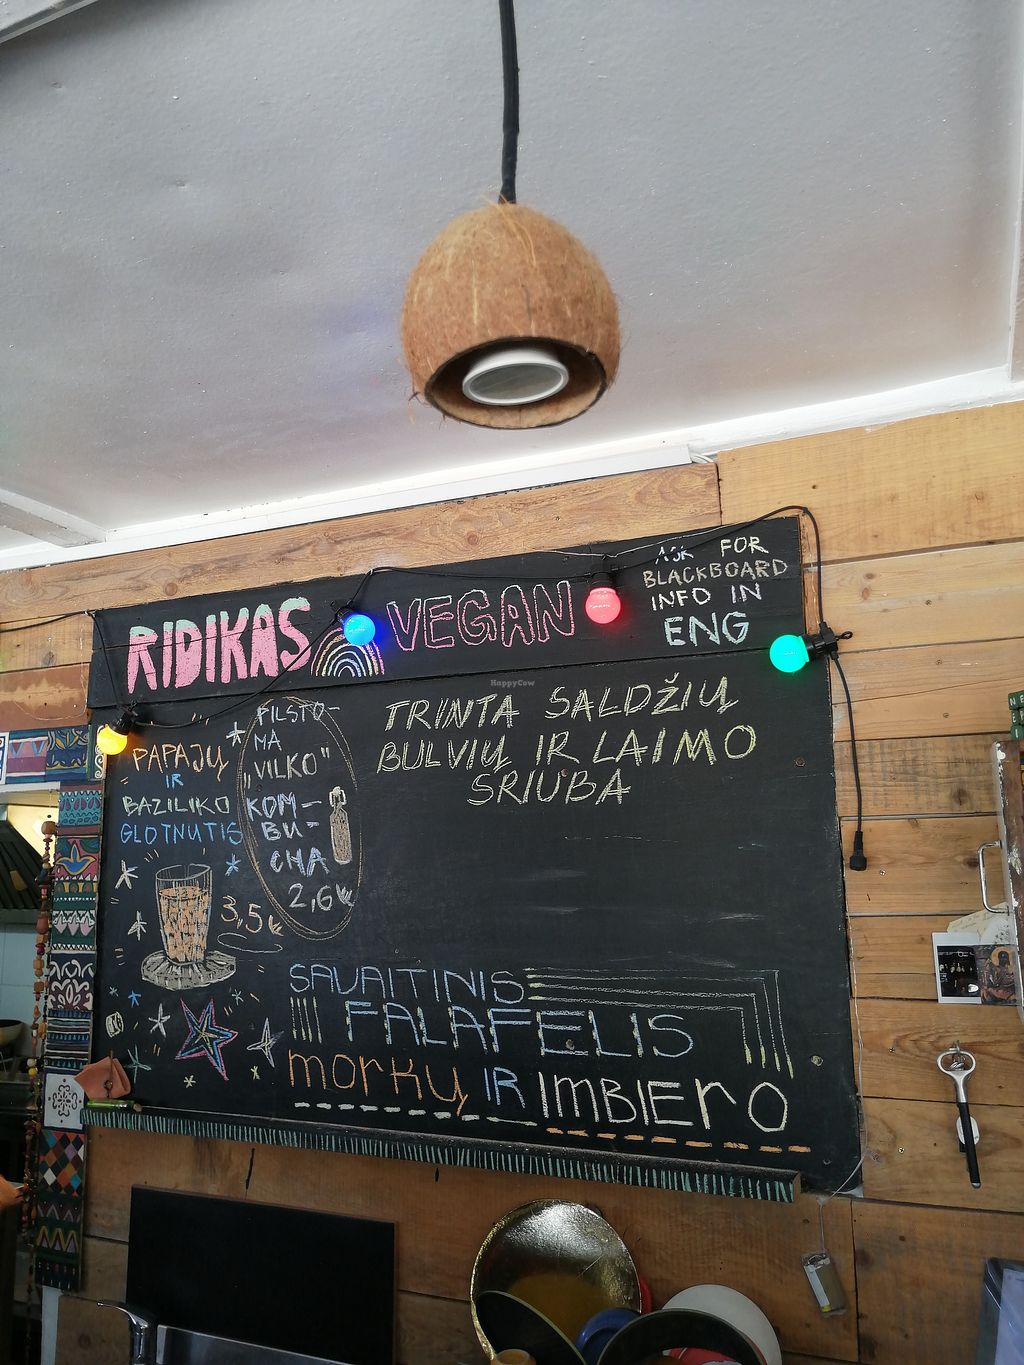 RIDIKAS VEGAN
ASK FOR
BLACKBOARD
INFO IN
ENG
HappyCow
PAPAJŲ
IR
BAZILIKO
GLOTNUTIS
3,5€
PILSTO-
MA
„VILKO"
KOM-
BU-
CHA
2,6€
TRINTA SALDŽIŲ
BULVIŲ IR LAIMO
SRIUBA
SAVAITINIS
FALAFELIS
MORKŲ IR IMBIERO